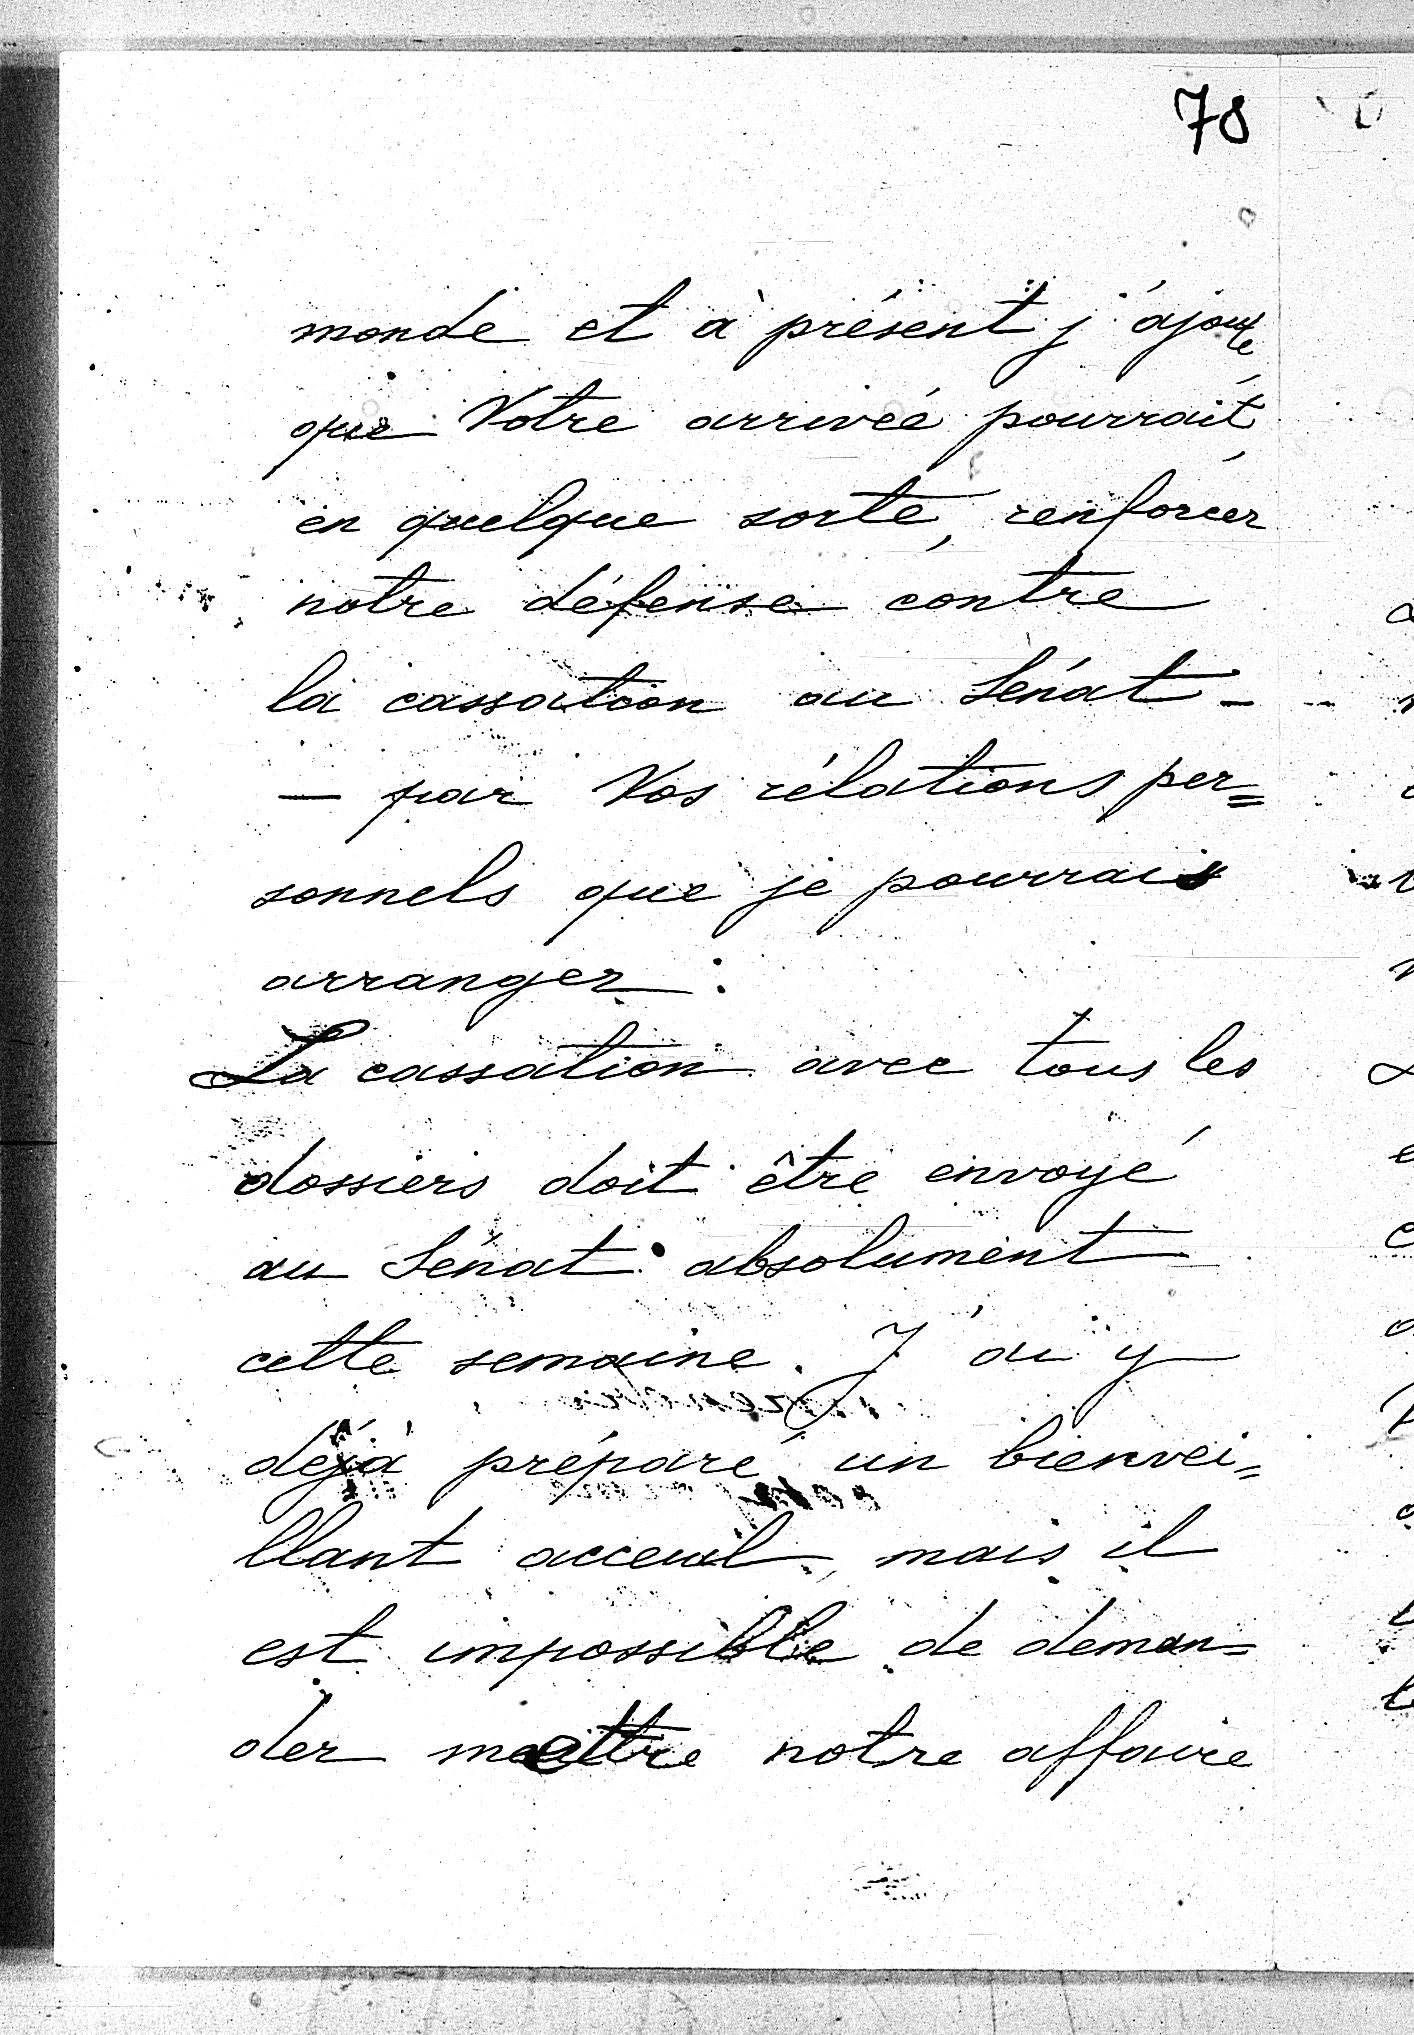 78
monde et à présent j'ajoute
que Votre arrivée pourrait,
en quelque sorte, renforcer
notre défense contre
la cassation au Sénat –
– par Vos rélations per=
sonnels que je pourrais
arranger:
La cassation avec tous les
dossiers doit être envoyé
au Sénat absolument
cette semaine. J'ai y
déjà préparé un bienvei=
llant acceuil, mais il
est impossible de deman=
der mettre notre affaire